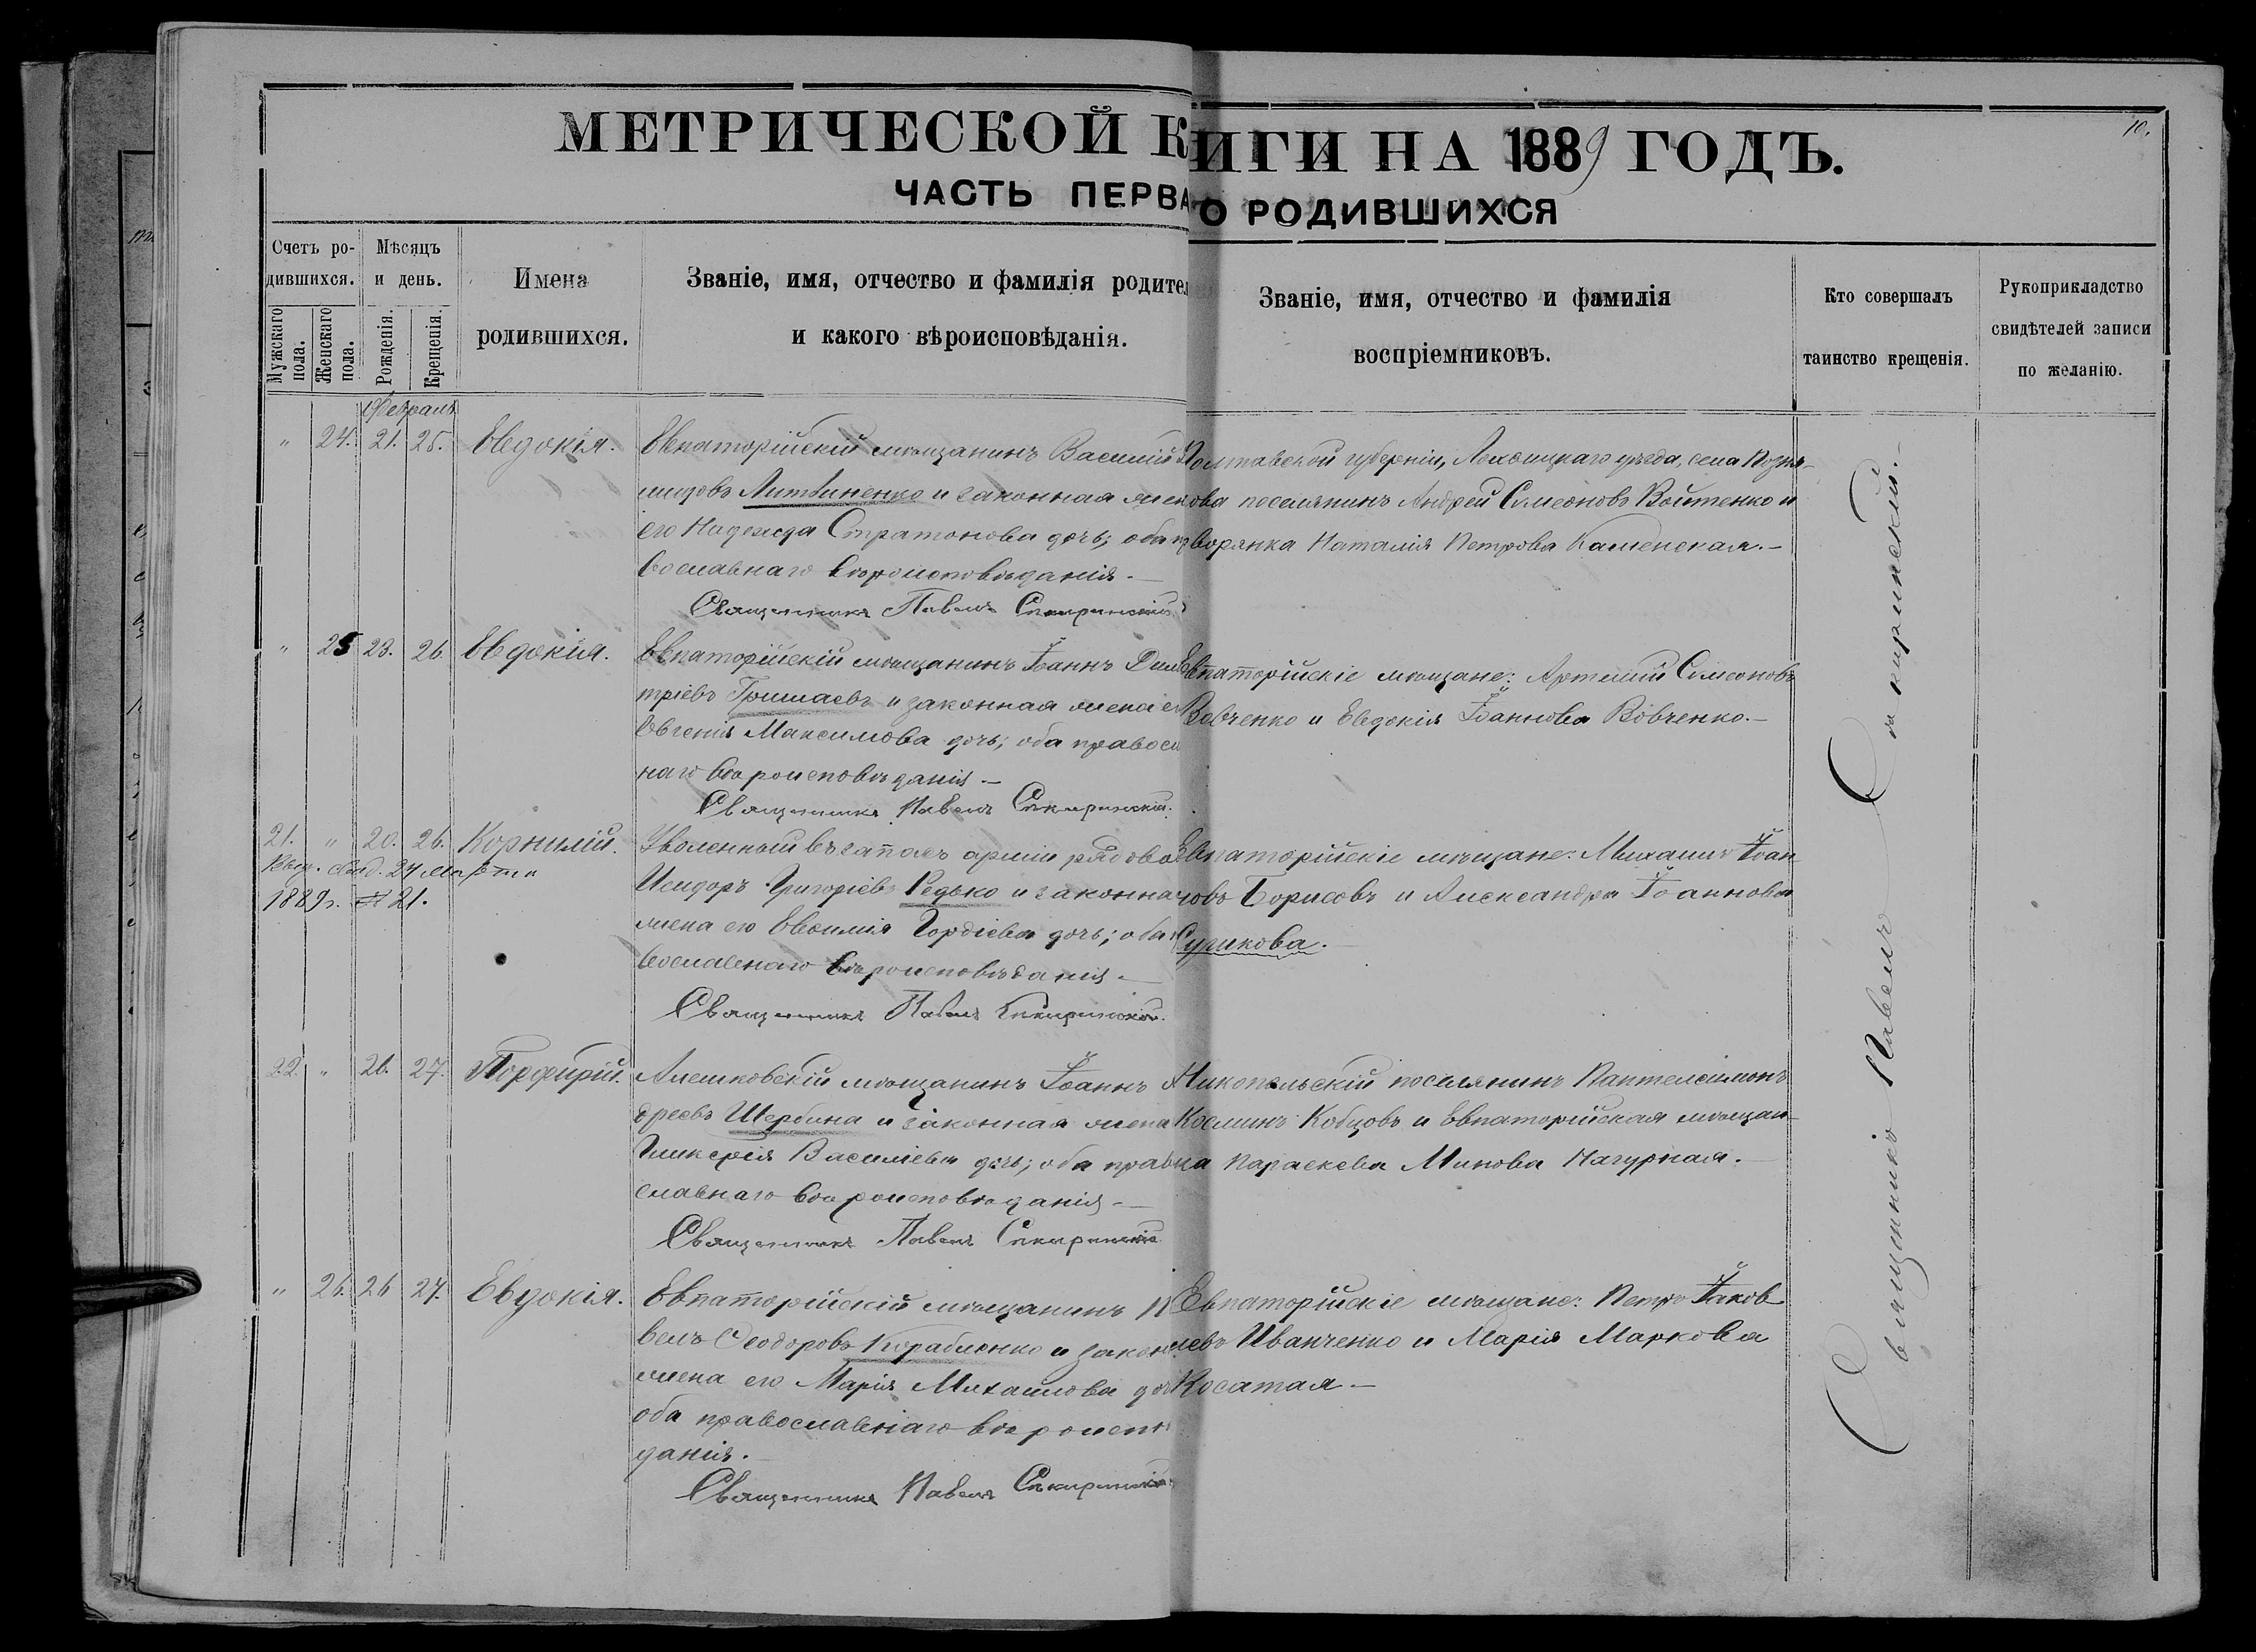 МЕТРИЧЕСКОЙ КНИГИ НА 1889 ГОДЪ.
10.
ЧАСТЬ ПЕРВА О РОДИВШИХСЯ
Счетъ ро-
дившихся.
Мужскаго пола.
Женскаго пола.
Мѣсяцъ
и день.
Рожденія.
Крещенія.
Имена
родившихся.
Званіе, имя, отчество и фамилія родител
и какого вѣроисповѣданія.
Званіе, имя, отчество и фамилія
воспріемниковъ.
Кто совершалъ
таинство крещенія.
Рукоприкладство
свидѣтелей записи
по желанію.
Февраль
" 24. 21. 25. Евдокія.
Евпаторійскій мѣщанинъ Василій
Литвиненко и законная жен
его Надежда Стратонова дочь; оба п
вославнаго вѣроисповѣданія.—
Священникъ Павелъ Сѣкиринскій
Полтавской губерніи, Лохвицкаго уѣзда, села
поселянинъ Андрей Симеоновъ Войтенко и
дворянка Наталія Петрова Каменская.—
" 25 23. 26. Евдокія.
Евпаторійскій мѣщанинъ Іоаннъ Дим
тріевъ Гришаевъ и законная жена е
Евгенія Максимова дочь; оба правосл
наго вѣроисповѣданія—
Священникъ Павелъ Сѣкиринскій.
Евпаторійскіе мѣщане: Артемій Симеоновъ
Вовченко и Евдокія Іоаннова Вовченко.—
21. " 20. 26. Корнилій.
24 Марта
1889г. № 21.
Уволенный въ запасъ арміи рядово
Исидоръ Григоріевъ Редько и законна
жена его Евфимія Гордіева дочь; оба п
вославнаго вѣроисповѣданія—
Священникъ Павелъ Сѣкиринскій.
Евпаторійскіе мѣщане: Михаилъ Іоан
новъ Борисовъ и Александра Іоаннова
Сурикова.
22. " 26. 27. Порфирій.
Алешковскій мѣщанинъ Іоаннъ Ан
дреевъ Щербина и законная жена
Гликерія Василіева дочь; оба право
славнаго вѣроисповѣданія—
Священникъ Павелъ Сѣкиринскій
Никопольскій поселянинъ Пантелеимонъ
Косминъ Кобцовъ и Евпаторійская мѣщан
ка Параскева Минова Нагурная.
" 26. 26 27. Евдокія.
Евпаторійскій мѣщанинъ Па
велъ Ѳеодоровъ Корабленко и закон
жена его Марія Михаилова до
оба православнаго вѣроиспов
данія.
Священникъ Павелъ Сѣкиринскій
Евпаторійскіе мѣщане: Петръ Іаков
левъ Иванченко и Марія Маркова
Косатая—
Священникъ Павелъ Сѣкиринскій.—